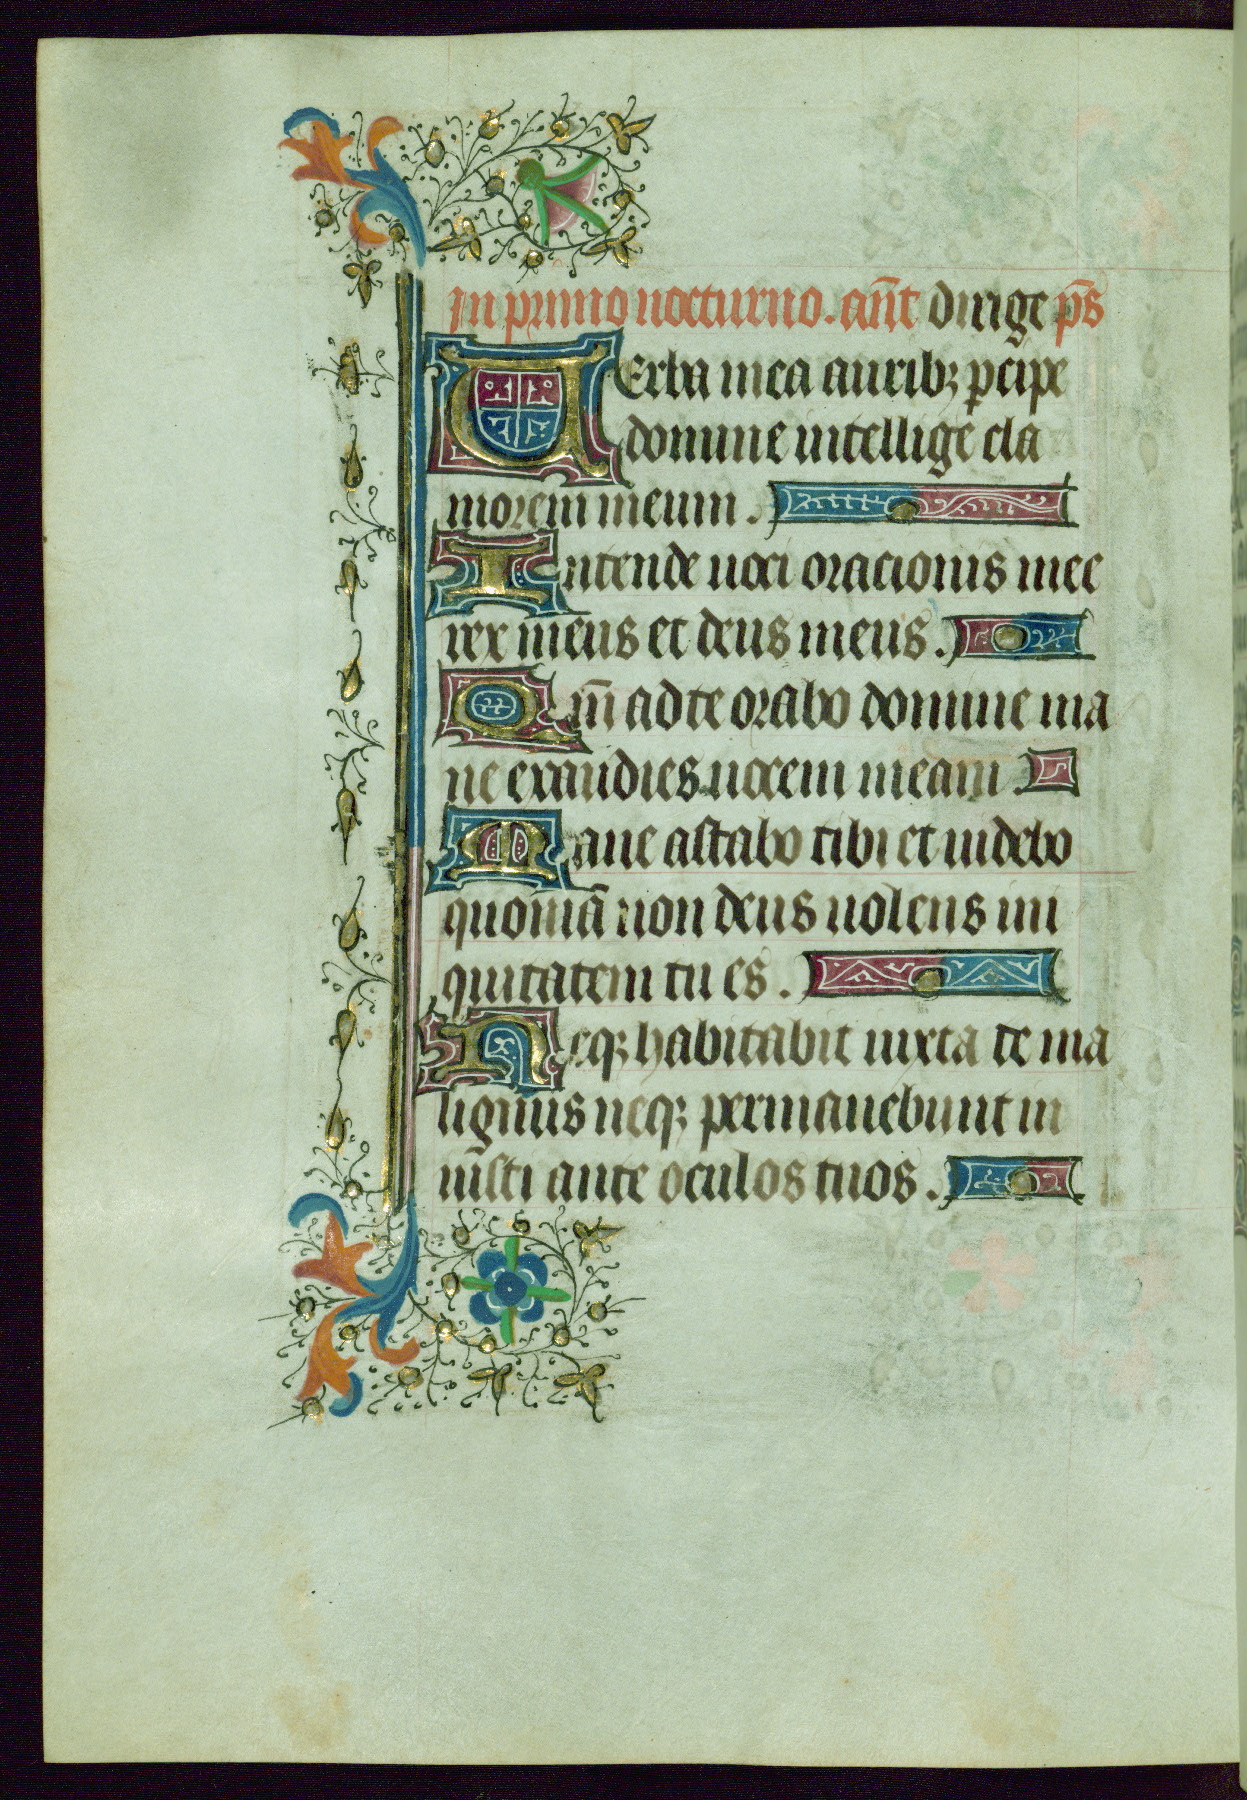 In primo nocturno. añt dirige p̄s
Uerba mea aurib; p̱cipe
domine intellige cla
morem meum.
Intende uoci oracionis mee
rex meus et deus meus.
Qm̄ ad te orabo domine ma
ne exaudies uocem meam.
Mane astabo tibi et uidebo
quoniā non deus uolens ini
quitatem tu es.
Neq; habitabit iuxta te ma
lignus neq; permanebunt in
iusti ante oculos tuos.